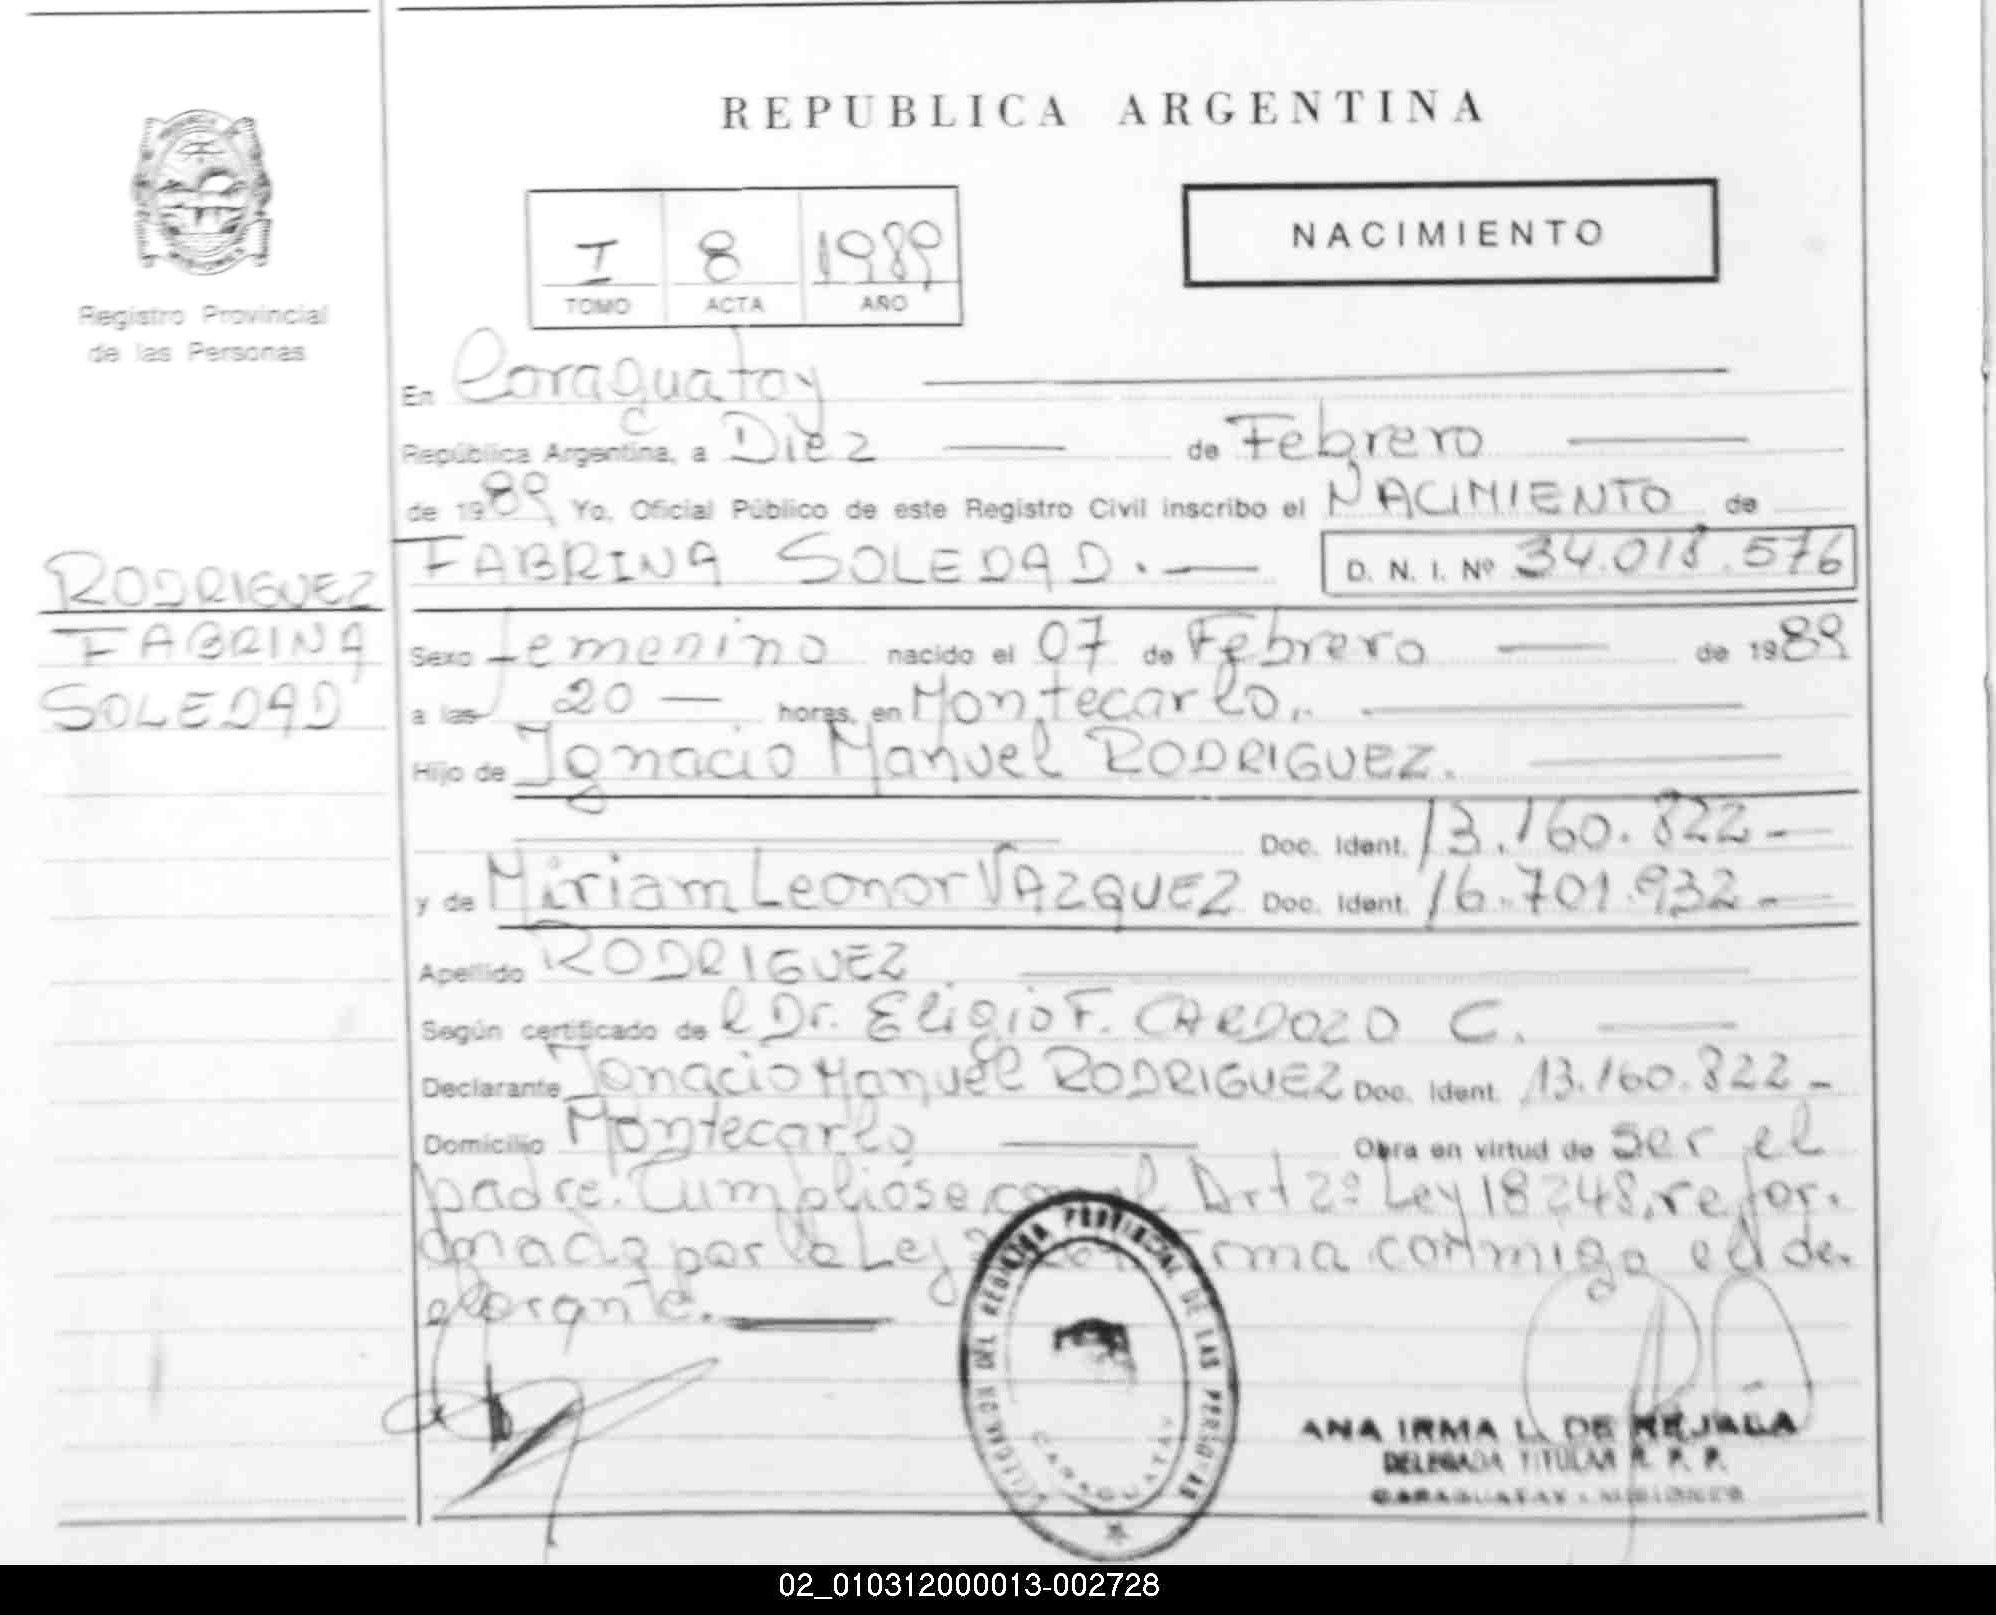 REPUBLICA ARGENTINA
NACIMIENTO
I 8 1989
TOMO ACTA AÑO
Registro Provincial
de las Personas
En Caraguatay
República Argentina, a Diez de Febrero
de 1989 Yo, Oficial Público de este Registro Civil inscribo el NACIMIENTO de
FABRINA SOLEDAD.— D. N. I. Nº 34.018.576
RODRIGUEZ
FABRINA
SOLEDAD
Sexo femenino nacido el 07 de Febrero de 1989
a las 20 — horas, en Montecarlo.
Hijo de Ignacio Manuel RODRIGUEZ.
Doc. Ident. 13.160.822-
y de Miriam Leonor VAZQUEZ Doc. Ident. 16.701.932-
Apellido RODRIGUEZ
Según certificado de l Dr. Eligio F. CARDOZO C.
Declarante Ignacio Manuel RODRIGUEZ Doc. Ident. 13.160.822-
Domicilio Montecarlo Obra en virtud de ser el
padre. Cumplióse con el Art 2º Ley 18248, refor-
mada por la Ley firma conmigo el de-
clarante.
DELEGACION DEL REGISTRO PROVINCIAL DE LAS PERSONAS
CARAGUATAY
ANA IRMA L. DE
DELEGADA TITULAR R. P. P.
CARAGUATAY - MISIONES
02_010312000013-002728